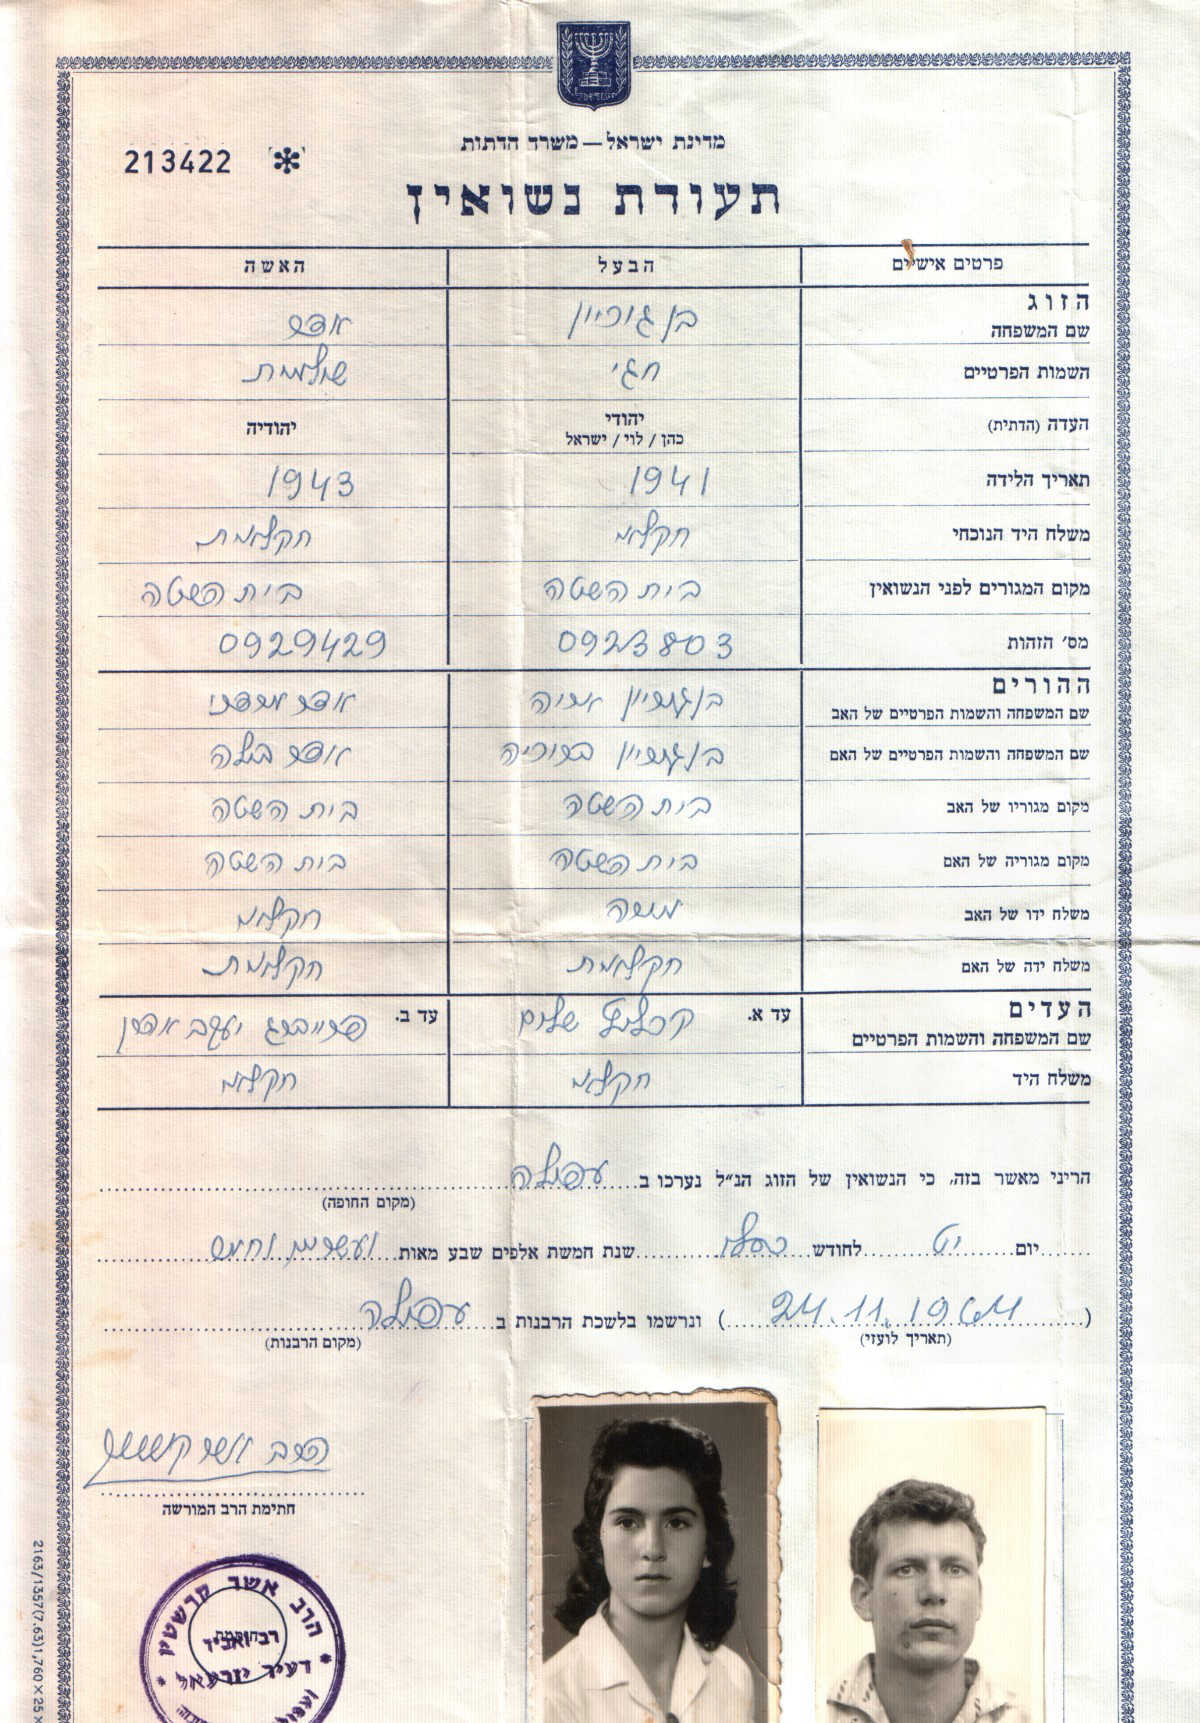 מדינת ישראל — משרד הדתות
213422 *
תעודת נשואין
פרטים אישיים הבעל האשה
הזוג
שם המשפחה בן גוריון אופר
השמות הפרטיים חגי שולמית
העדה (הדתית) יהודי יהודיה
כהן / לוי / ישראל
תאריך הלידה 1941 1943
משלח היד הנוכחי חקלאי חקלאית
מקום המגורים לפני הנשואין בית השטה בית השטה
מס׳ הזהות 0923803 0929429
ההורים
שם המשפחה והשמות הפרטיים של האב בן גוריון אריה אופר מרדכי
שם המשפחה והשמות הפרטיים של האם בן גוריון ברוריה אופר בילה
מקום מגוריו של האב בית השטה בית השטה
מקום מגוריה של האם בית השטה בית השטה
משלח ידו של האב מורה חקלאי
משלח ידה של האם חקלאית חקלאית
העדים
שם המשפחה והשמות הפרטיים עד א. קפלוט שלום עד ב. פריוברג יעקב אהרן
משלח היד חקלאי חקלאי
הריני מאשר בזה, כי הנשואין של הזוג הנ״ל נערכו ב עפולה
(מקום החופה)
יום יט לחודש כסלו שנת חמשת אלפים שבע מאות ועשרים וחמש
(24.11.1964) ונרשמו בלשכת הרבנות ב עפולה
(תאריך לועזי) (מקום הרבנות)
הרב אשר קירשטיין
חתימת הרב המורשה
הרב אשר קרשטין
רב ואב״ד
דעיר יזרעאל
2163/1357(7.63)1,760×25×